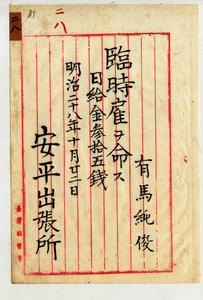 二八
81
二八
有馬純俊
臨時雇ヲ命ス
日給金参拾五銭
明治二十八年十月廿二日
安平出張所